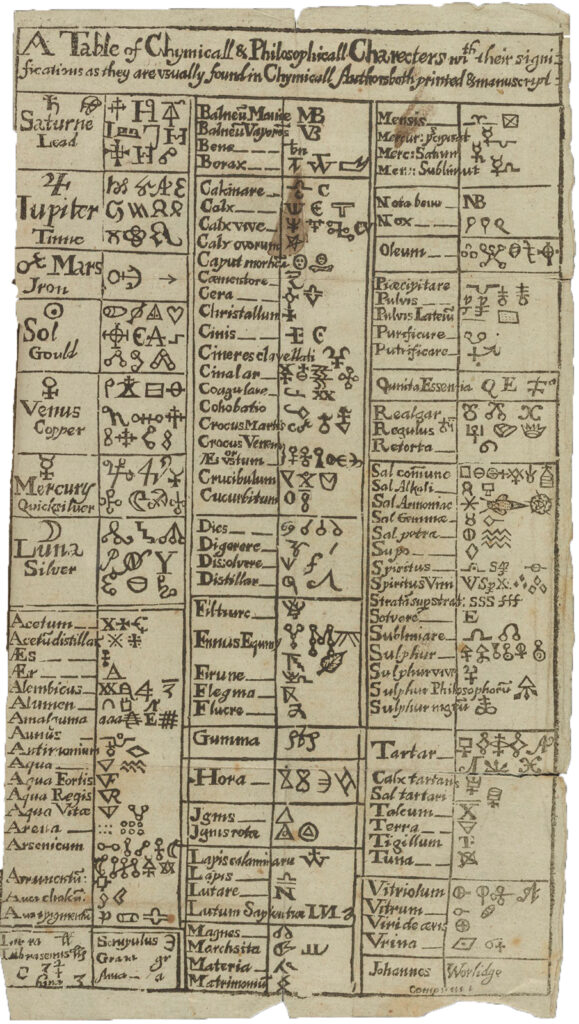 A Table of Chymicall & Philosophicall Charecters wth their signi=
fications as they are usually found in Chymicall Authors both printed & manuscript
Saturne
Lead
Iupiter
Tinne
Mars
Iron
Sol
Gould
Venus
Copper
Mercury
Quicksilver
Luna
Silver
Acetum
Acetũ distillat
Æs
Ær
Alembicus
Alumen
Amalgama aaa
Antimonium
Aqua
Aqua Fortis VF
Aqua Regis VR
Aqua Vitæ
Arena
Arsenicum
Scrupulus
Grana gr
Balneũ Mariæ MB
Balneũ Vaporis VB
Bene bn
Borax
Calcinare C
Calx
Calx vive
Calx ovorum
Caput mortuũ
Cæmentare
Cera
Christallum
Cinis
Cineres clavellati
Cinabar
Coagulare
Cohobatio
Crocus Martis
Crocus Veneris
or
Æs ustum
Crucibulum
Cucurbitum
Dies
Digerere
Disolvere
Distillar
Filtrare
Fimus Equiny
Firune
Flegma
Fluere
Gumma
Hora
Ignis
Ignis rotæ
Lapis calaminaris
Lapis
Lutare
Lutum Sapientiæ
Magnes
Marchsita
Materia
Matrimoniũ
Mensis
Mercur: precipitat
Merc: Saturni
Mer:: Sublimat
Nota bene NB
Nox
Oleum
Præcipitare
Pulvis
Pulvis Laterũ
Purificare
Putrificare
Quinta Essentia Q E
Realgar
Regulus
Retorta
Sal comune
Sal Alkali
Sal Armoniac
Sal Gemmæ
Sal petræ
Sapo
Spiritus
Spiritus Vini
Stratũ sup strat: SSS
Solvere E
Sublimare
Sulphur
Sulphur vive
Sulphur Philosophorũ
Sulphur nigrũ
Tartar
Calx tartari
Sal tartari
Talcum
Terra
Tigillum
Tutia
Vitriolum
Vitrum
Viride æris
Vrina
Johannes Worlidge